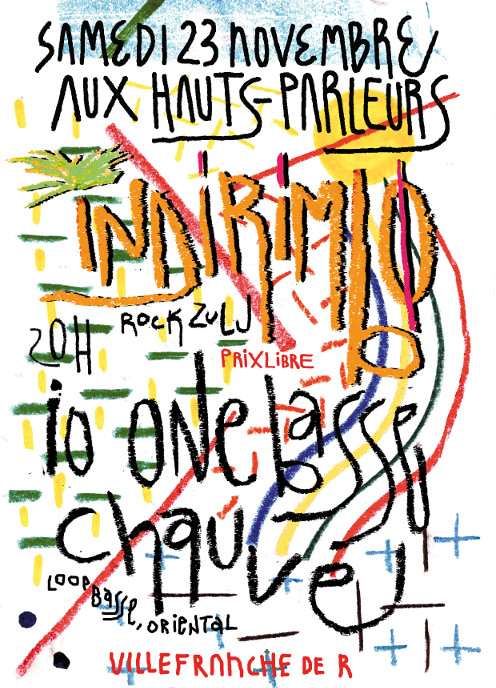 SAMEDI 23 NOVEMBRE
AUX HAUTS-PARLEURS
INDIRIMBO
ROCK ZULU
20H
PRIX LIBRE
io ONe basse
chauve
LOOP BASSE, ORIENTAL
VILLEFRANCHE DE R